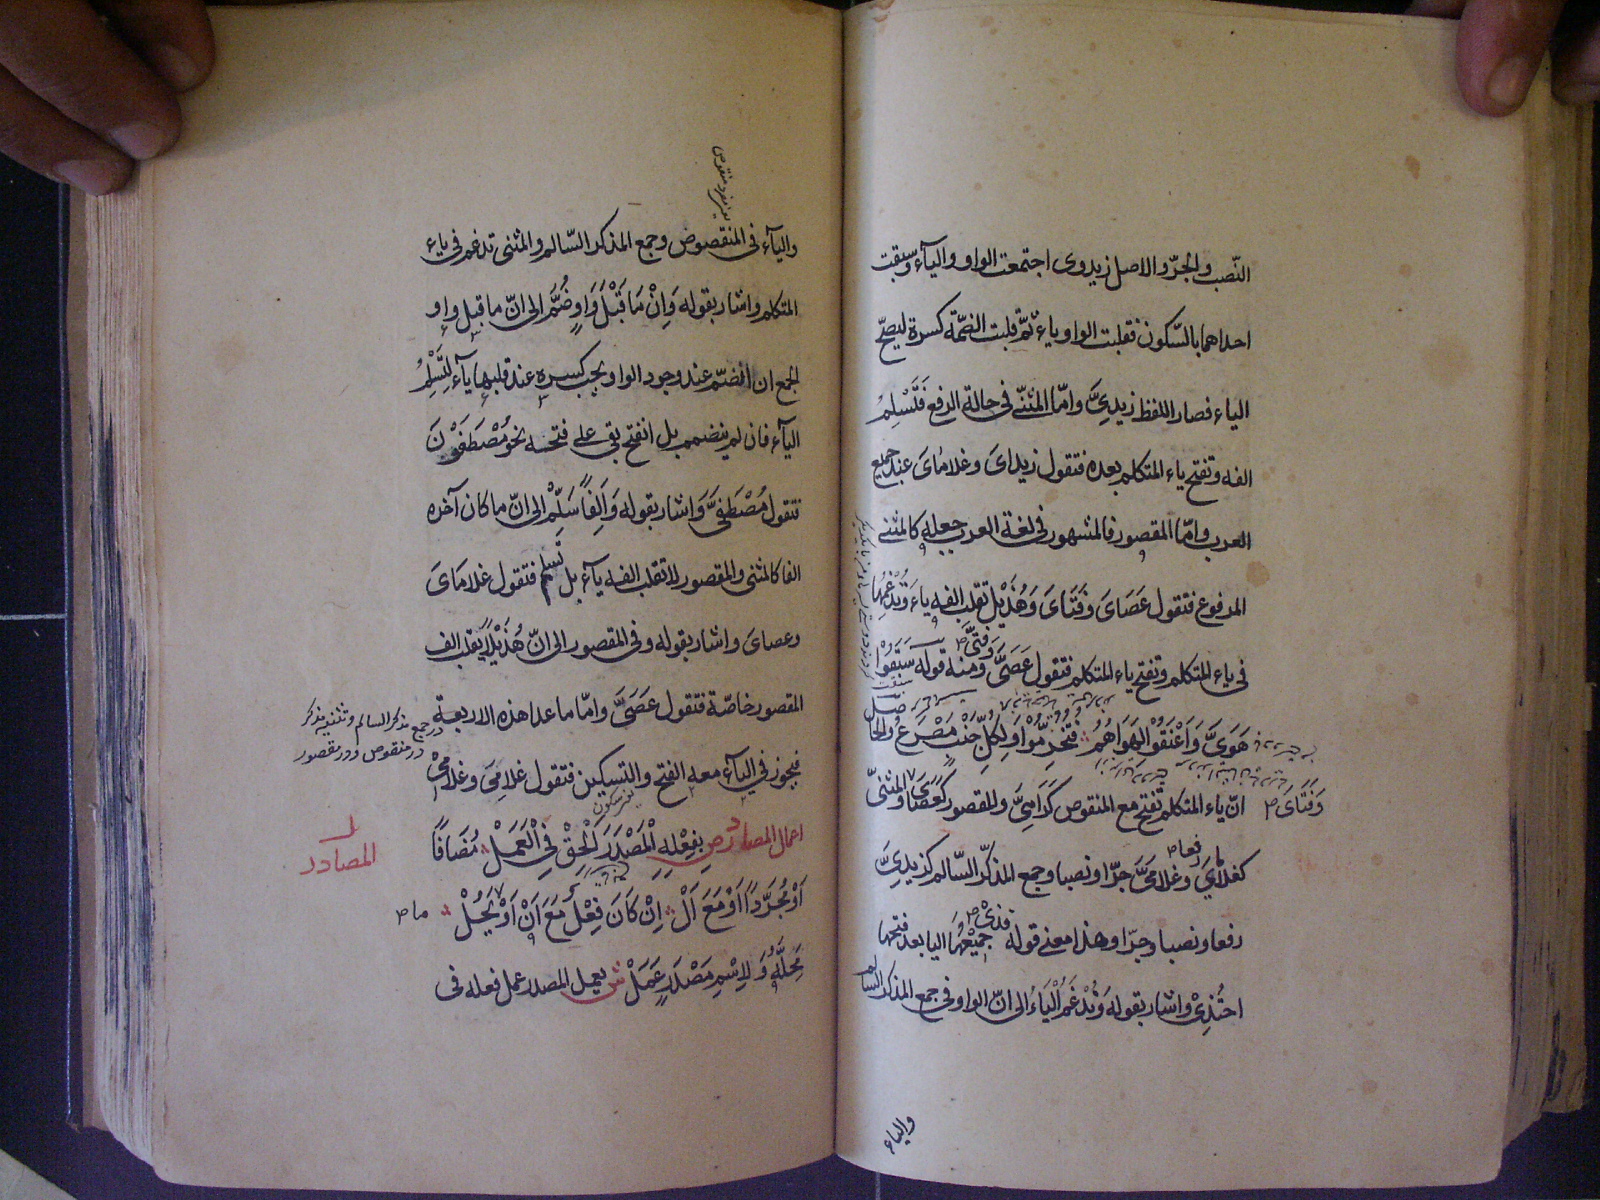 النّصب والجرّ والاصل زيدوى اجتمعت الواو والياء وسبقت
احداهما بالسّكون فقلبت الواو ياء ثمّ قلبت الضمّة كسرة ليصحّ
الياء فصار اللفظ زيدِىَّ وامّا المثنّى فى حالة الرفع فَتَسْلِمُ
الفه وتفتح ياء المتكلم بعده فتقول زيداىَ وغلامَاىَ عند جميع
العرب وامّا المقصور فالمشهور فى لغة العرب جعله كالمثنى
المرفوع فتقول عَصَاىَ وَفَتَاىَ وَهُذَيْل تقلب الفه ياء وَتُدْغِمُهَا
فى ياء المتكلم وتفتح ياء المتكلم فتقول عَصَىَّ وَفَتَىَّ ومنه قوله سَبَقُوْا
هَوَىَّ وَاَعْنَقُوْا لِهَوَاهُمْ فَتُخُرِّمُوْا وَلِكُلِّ جَنْبٍ مَصْرَعُ والحاصل
انّ ياء المتكلم تفتح مع المنقوص كَرَامِىَّ والمقصور كَعَصَاىَ والمثنّى
وَفَتَاىَ
كغلاماىَ رفعا وغلامَىَّ جرّا ونصبا وجمع المذكّر السّالم كزيدِىَّ
رفعا ونصبا وجرّا وهذا معنى قوله فذىْ جَمِيْعُهَا اليا بعد فتحها
احتُذِىْ واشار بقوله وَتُدْغَمُ الْيَاءُ الى انّ الواو فى جمع المذكر السالم
والياء
والياء فى المنقصوص وجمع المذكر السّالم والمثنى تدغم فى ياء
المتكلم واشار بقوله وَاِنْ مَا قَبْلَ وَاوٍ ضُمَّ الى انّ ما قبل واو
الجمع ان انضمّ عند وجود الواو يجب كسره عند قلبها ياء لِتَسْلِمُ
الياء فان لم ينضمم بل انفتح بقى على فتحه نحو مُصْطَفَوْنَ
فتقول مُصْطَفَىَّ وَاشار بقوله وَاَلِفًا سَلِّمْ الى انّ ما كان آخره
الفا كالمثنى والمقصور لا تقلب الفه ياء بل تَسلم فتقول غلامَاىَ
وعصاىَ واشار بقوله وفى المقصور الى انّ هُذَيْلًا يقلب الف
المقصور خاصّة فتقول عَصَىَّ وامّا ما عدا هذه الاربعة
در جمع مذكر السالم وتثنيه مذكر
در منقوص ودر مقصور
فيجوز فى الياء معه الفتح والتسكين فتقول غلامِىَ وغلامِىْ
اعمال المصادر ص بِفِعْلِهِ الْمَصْدَرَ اَلْحِقْ فِى الْعَمَلْ مُضَافًا
المصادر
اَوْ مُجَرَّدًا اَوْ مَعَ اَلْ اِنْ كَانَ فِعْلٌ مَعَ اَنْ اَوْ يَحُلْ
ما
مَحَلَّهُ وَلِاِسْمِ مَصْدَرٍ عَمَلْ ش يعمل المصدر عمل فعله فى